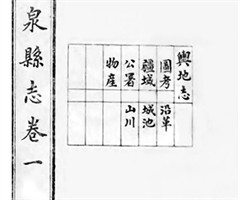 泉縣志卷一
輿地志
圖考
沿革
疆域
城池
公署
山川
物產